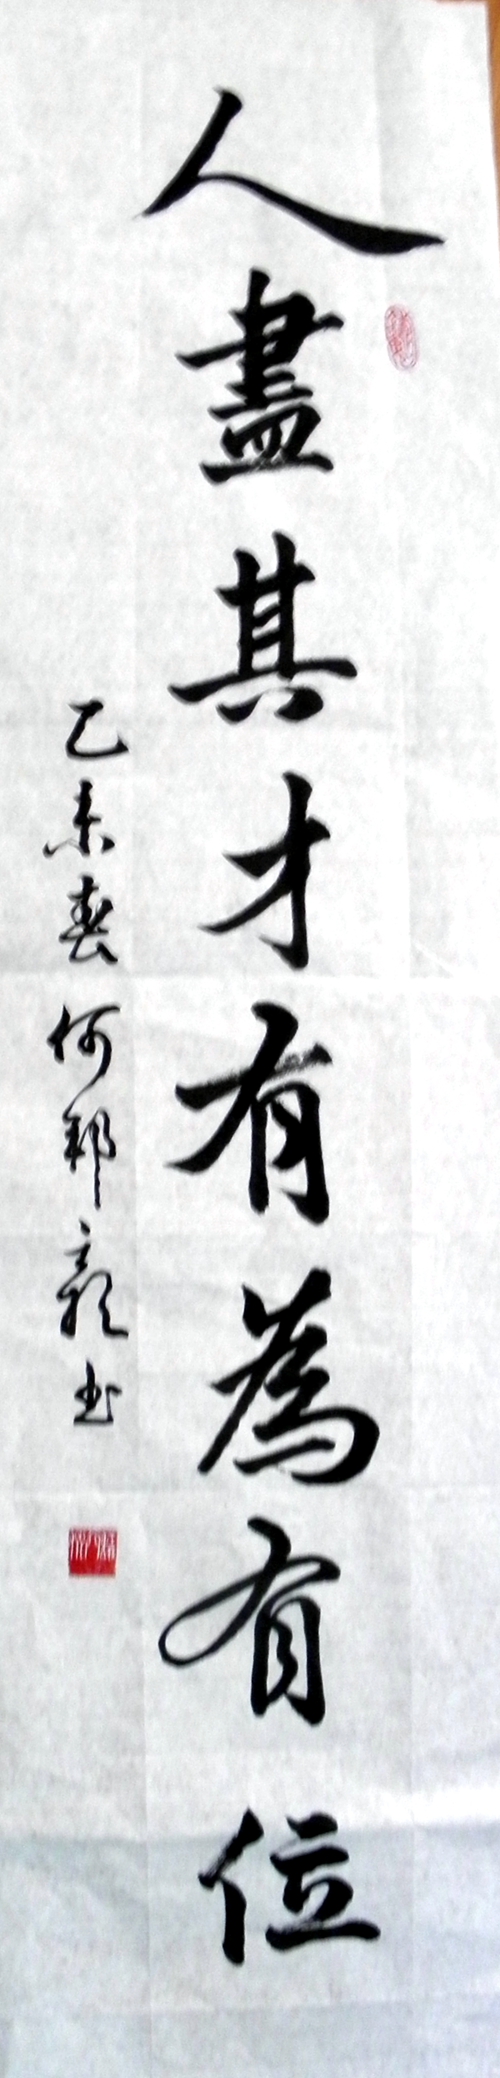 人盡其才有為有位
乙未春何邦彰书